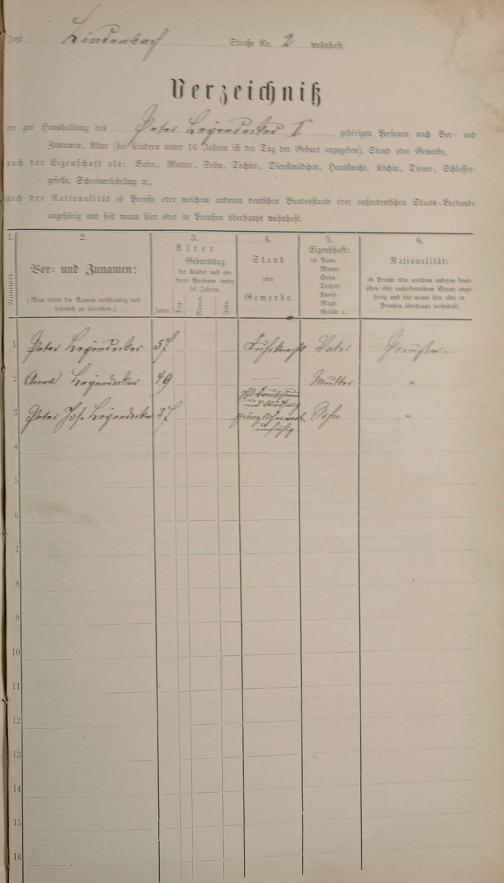 Lindenbach Straße No. 2 wohnhaft.
Verzeichniß
der zur Haushaltung des Peter Legendecker I gehörigen Personen nach Vor- und
Zunamen, Alter (bei Kindern unter 16 Jahren ist der Tag der Geburt anzugeben), Stand oder Gewerbe,
nach der Eigenschaft als: Vater, Mutter, Sohn, Tochter, Dienstmädchen, Hausknecht, Köchin, Diener, Schlosser-
geselle, Schreinerlehrling ꝛc.,
nach der Nationalität ob Preuße oder welchem anderen deutschen Bundesstaate oder außerdeutschen Staats-Verbande
angehörig und seit wann hier oder in Preußen überhaupt wohnhaft.
1. 2. 3. 4. 5. 6.
Nummer.
Vor- und Zunamen:
(Man bittet die Namen vollständig und
leserlich zu schreiben.)
Alter
Geburtstag
der Kinder und an-
derer Personen unter
16 Jahren.
Jahre. Tag. Monat. Jahr.
Stand
oder
Gewerbe.
Eigenschaft:
ob Vater
Mutter
Sohn
Tochter
Knecht
Magd
Geselle ꝛc.
Nationalität:
ob Preuße oder welchem anderen deut-
schen oder außerdeutschen Staate ange-
hörig und seit wann hier oder in
Preußen überhaupt wohnhaft.
1 Peter Legendecker 57 Vater Preuße
2 Anna Legendecker 49 Mutter "
3 Peter Jos. Legendecker 27 Sohn "
4
5
6
7
8
9
10
11
12
13
14
15
16